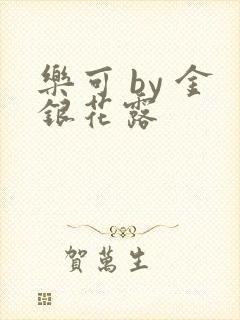 樂可 by 金
銀花露
賀萬生